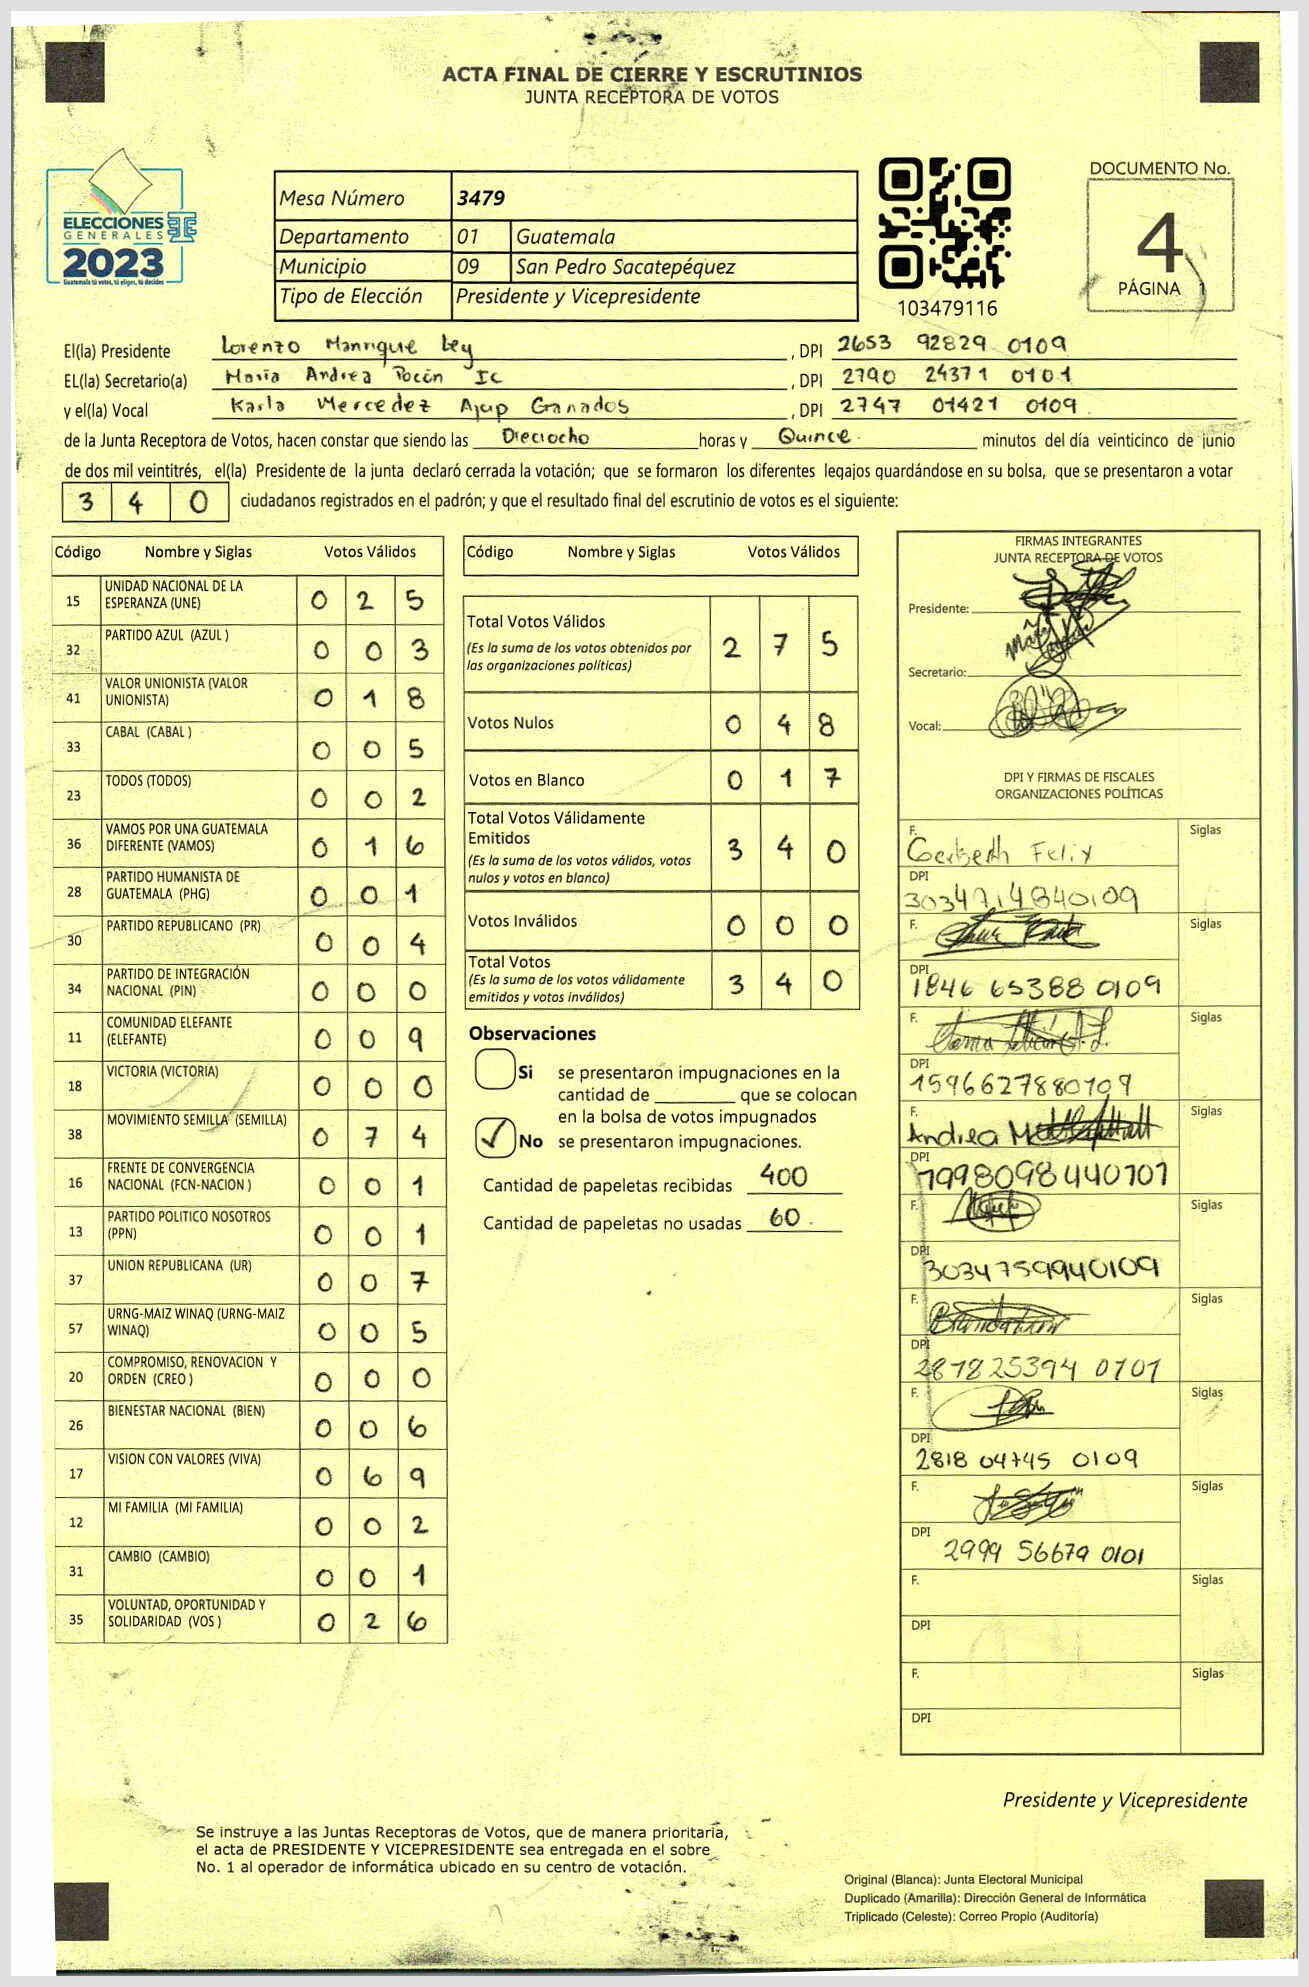 ACTA FINAL DE CIERRE Y ESCRUTINIOS
JUNTA RECEPTORA DE VOTOS
ELECCIONES
GENERALES
2023
Guatemala tú votas, tú eliges, tú decides
Mesa Número 3479
Departamento 01 Guatemala
Municipio 09 San Pedro Sacatepéquez
Tipo de Elección Presidente y Vicepresidente
103479116
DOCUMENTO No.
4
PÁGINA 1
El(la) Presidente Lorenzo Manrique Ley , DPI 2653 92829 0109
EL(la) Secretario(a) María Andrea Pocón Ic , DPI 2790 24371 0101
y el(la) Vocal Karla Mercedez Ajup Granados , DPI 2747 01421 0109
de la Junta Receptora de Votos, hacen constar que siendo las Dieciocho horas y Quince minutos del día veinticinco de junio
de dos mil veintitrés, el(la) Presidente de la junta declaró cerrada la votación; que se formaron los diferentes legajos guardándose en su bolsa, que se presentaron a votar
3 4 0 ciudadanos registrados en el padrón; y que el resultado final del escrutinio de votos es el siguiente:
Código Nombre y Siglas Votos Válidos
15 UNIDAD NACIONAL DE LA ESPERANZA (UNE) 0 2 5
32 PARTIDO AZUL (AZUL ) 0 0 3
41 VALOR UNIONISTA (VALOR UNIONISTA) 0 1 8
33 CABAL (CABAL ) 0 0 5
23 TODOS (TODOS) 0 0 2
36 VAMOS POR UNA GUATEMALA DIFERENTE (VAMOS) 0 1 6
28 PARTIDO HUMANISTA DE GUATEMALA (PHG) 0 0 1
30 PARTIDO REPUBLICANO (PR) 0 0 4
34 PARTIDO DE INTEGRACIÓN NACIONAL (PIN) 0 0 0
11 COMUNIDAD ELEFANTE (ELEFANTE) 0 0 9
18 VICTORIA (VICTORIA) 0 0 0
38 MOVIMIENTO SEMILLA (SEMILLA) 0 7 4
16 FRENTE DE CONVERGENCIA NACIONAL (FCN-NACION ) 0 0 1
13 PARTIDO POLITICO NOSOTROS (PPN) 0 0 1
37 UNION REPUBLICANA (UR) 0 0 7
57 URNG-MAIZ WINAQ (URNG-MAIZ WINAQ) 0 0 5
20 COMPROMISO, RENOVACION Y ORDEN (CREO ) 0 0 0
26 BIENESTAR NACIONAL (BIEN) 0 0 6
17 VISION CON VALORES (VIVA) 0 6 9
12 MI FAMILIA (MI FAMILIA) 0 0 2
31 CAMBIO (CAMBIO) 0 0 1
35 VOLUNTAD, OPORTUNIDAD Y SOLIDARIDAD (VOS ) 0 2 6
Código Nombre y Siglas Votos Válidos
Total Votos Válidos 2 7 5
(Es la suma de los votos obtenidos por
las organizaciones políticas)
Votos Nulos 0 4 8
Votos en Blanco 0 1 7
Total Votos Válidamente
Emitidos 3 4 0
(Es la suma de los votos válidos, votos
nulos y votos en blanco)
Votos Inválidos 0 0 0
Total Votos 3 4 0
(Es la suma de los votos válidamente
emitidos y votos inválidos)
Observaciones
Si se presentaron impugnaciones en la
cantidad de ________ que se colocan
en la bolsa de votos impugnados
✓ No se presentaron impugnaciones.
Cantidad de papeletas recibidas 400
Cantidad de papeletas no usadas 60
FIRMAS INTEGRANTES
JUNTA RECEPTORA DE VOTOS
Presidente:
Secretario:
Vocal:
DPI Y FIRMAS DE FISCALES
ORGANIZACIONES POLÍTICAS
F. Gerberth Felix Siglas
DPI 3034714840109
F. Siglas
DPI 1846 65388 0109
F. Siglas
DPI 1596627880109
F. Andrea Siglas
DPI 1998098440101
F. Siglas
DPI 3034759940109
F. Siglas
DPI 287825394 0101
F. Siglas
DPI 2818 04745 0109
F. Siglas
DPI 2999 56679 0101
F. Siglas
DPI
F. Siglas
DPI
Presidente y Vicepresidente
Se instruye a las Juntas Receptoras de Votos, que de manera prioritaria,
el acta de PRESIDENTE Y VICEPRESIDENTE sea entregada en el sobre
No. 1 al operador de informática ubicado en su centro de votación.
Original (Blanca): Junta Electoral Municipal
Duplicado (Amarilla): Dirección General de Informática
Triplicado (Celeste): Correo Propio (Auditoría)